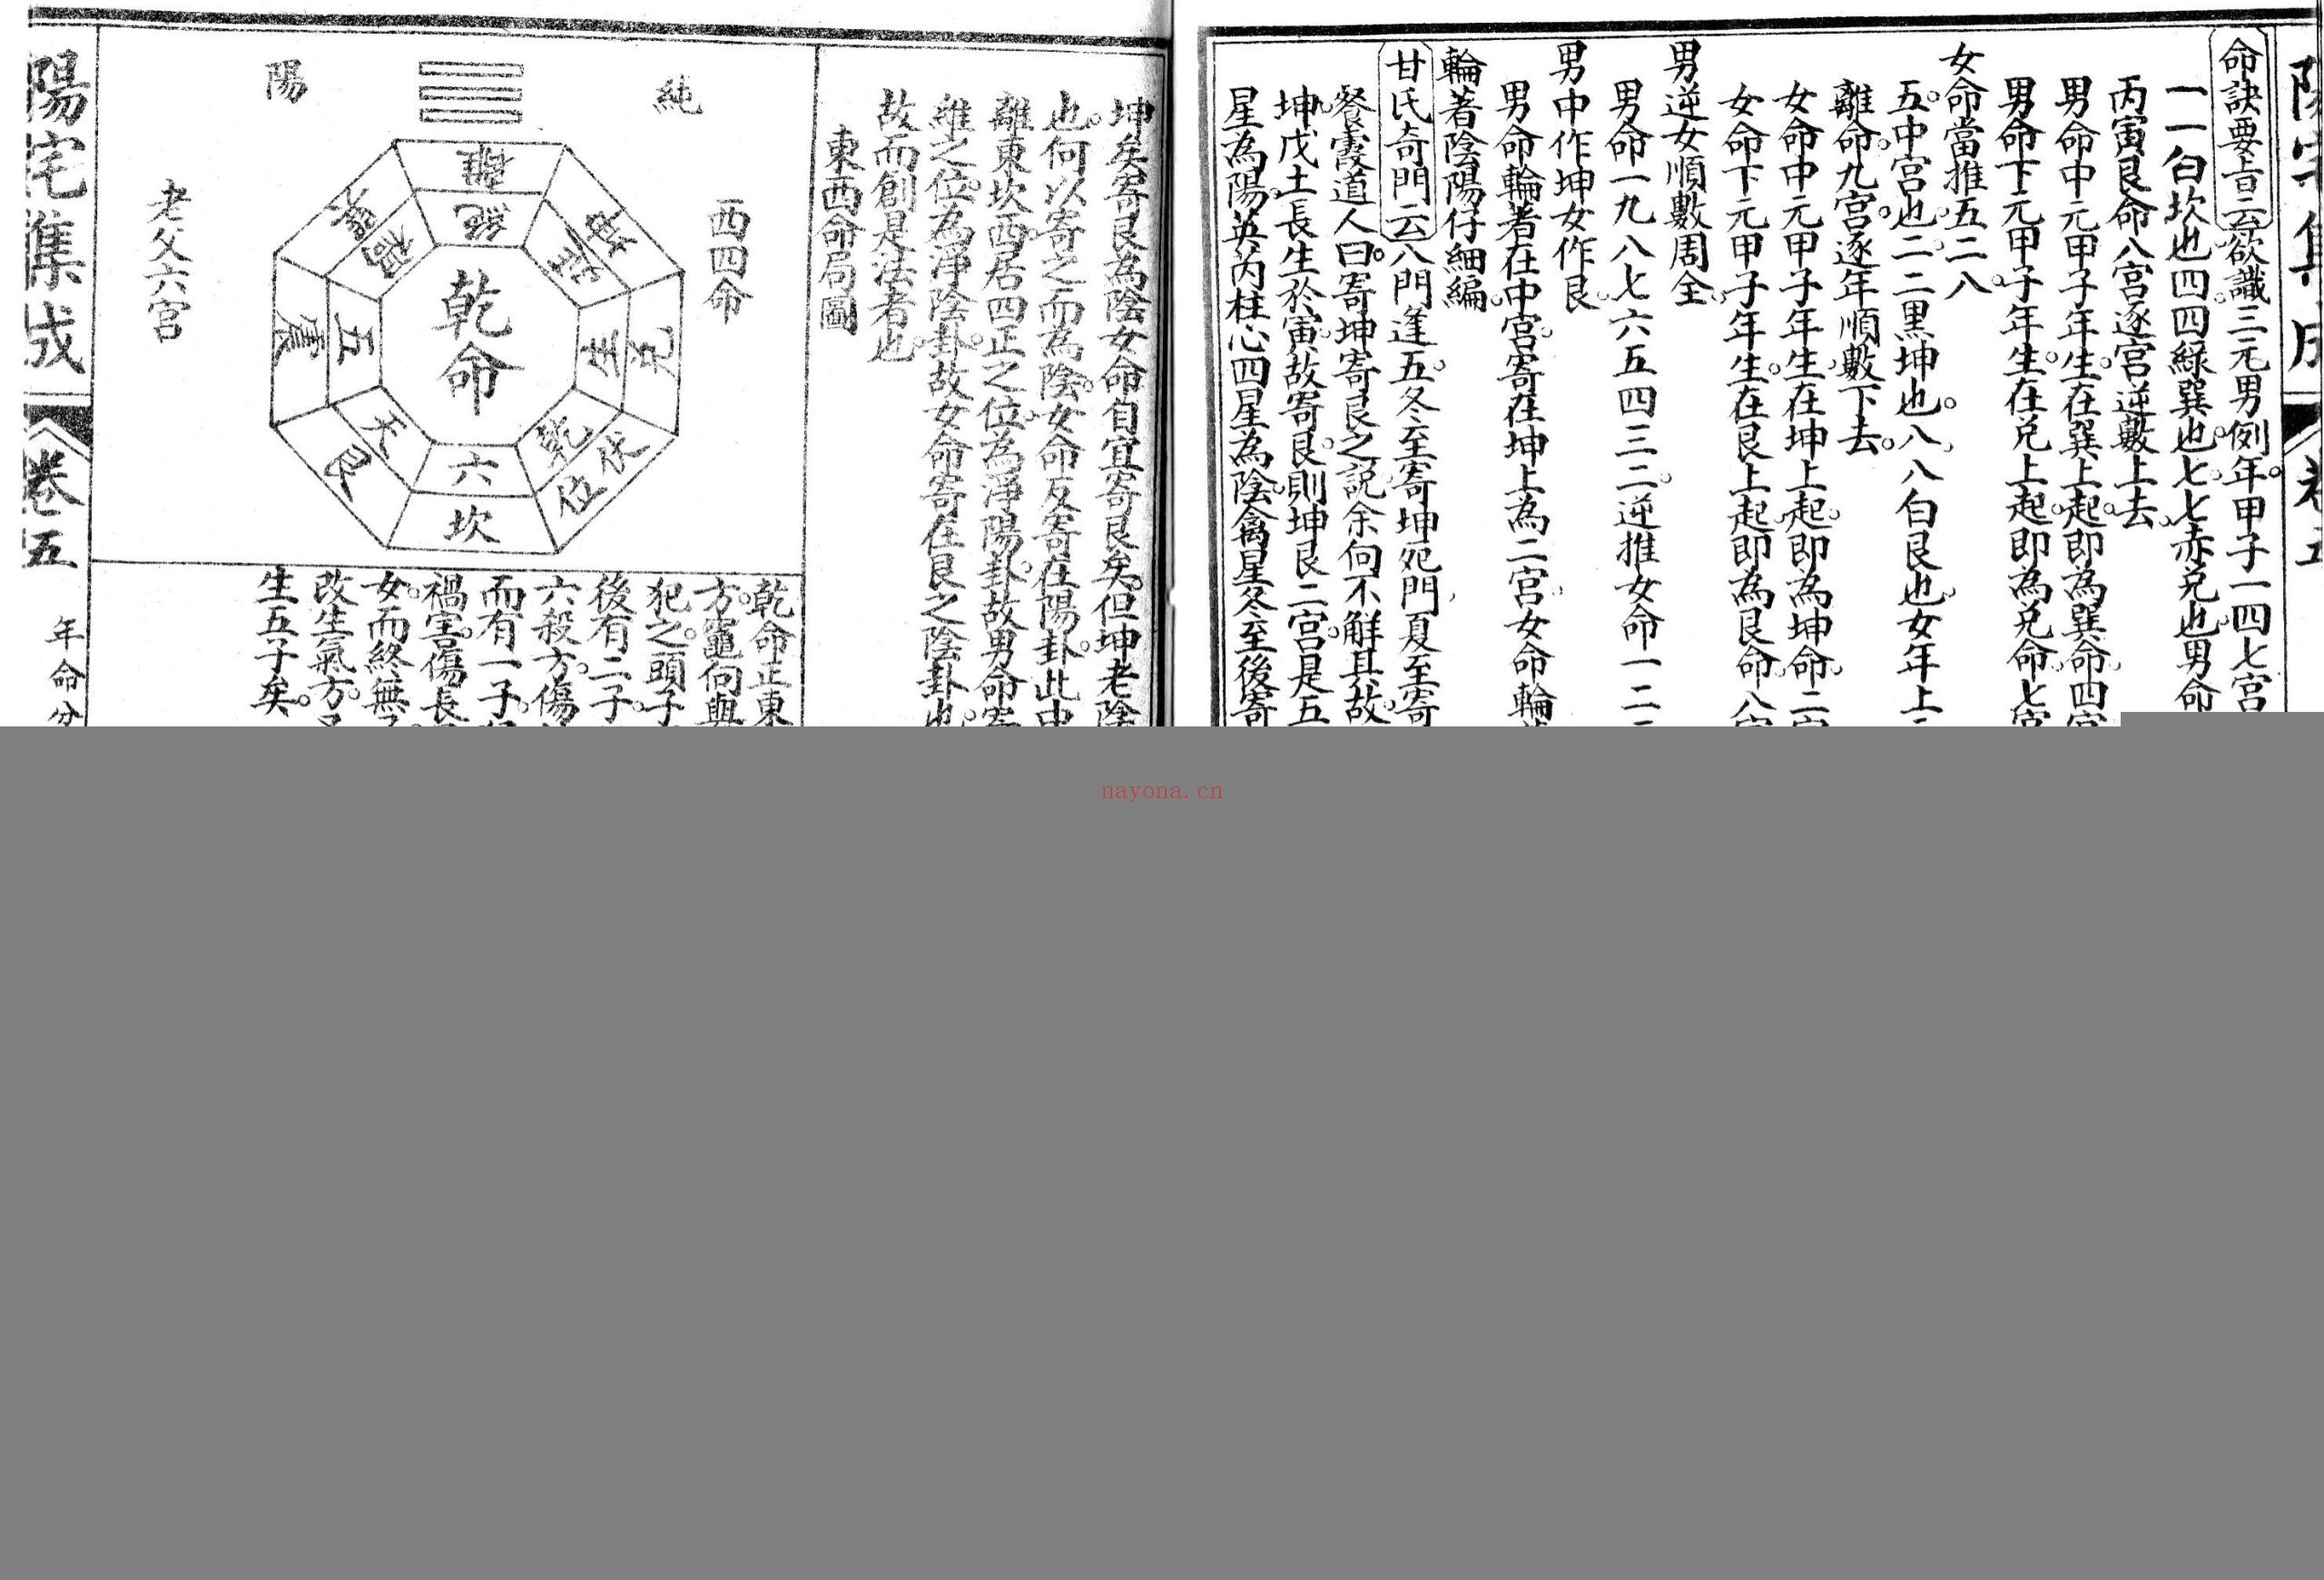 命訣要旨云欲識三元男例年甲子一四七宮
一一白坎也四四綠巽也七七赤兌也男命
丙寅艮命八宮逐宮逆數上去
男命中元甲子年生在巽上起即為巽命四宮
男命下元甲子年生在兌上起即為兌命七宮
女命當推五二八
五中宮也二二黑坤也八八白艮也女年上
離命九宮逐年順數下去
女命中元甲子年生在坤上起即為坤命二宮
女命下元甲子年生在艮上起即為艮命八宮
男逆女順數周全
男命一九八七六五四三二逆推女命一二
男中作坤女作艮
男命輪著在中宮寄在坤上為二宮女命輪
輪著陰陽仔細編
甘氏奇門云八門逢五冬至寄坤死門夏至寄
餐霞道人曰寄坤寄艮之說余向不解其故
坤戊土長生於寅故寄艮則坤艮二宮是五
星為陽英芮柱心四星為陰禽星冬至後寄
坤矣寄艮為陰女命自宜寄艮矣但坤老陰
也何以寄之而為陰女命反寄在陽卦此中
離東坎西居四正之位為淨陽卦故男命寄
維之位為淨陰卦故女命寄在艮之陰卦也
故而創是法者也
東西命局圖
純
陽
西四命
老父六宮
乾命
離
絕
坤
延
兌
生
伏位
乾
坎
六
艮
天
震
五
巽
禍
乾命正東
方竈向與
犯之頭子
後有二子
六殺方傷
而有一子
禍害傷長
女而終無
改生氣方
生五子矣
陽宅集成
卷五
年命分